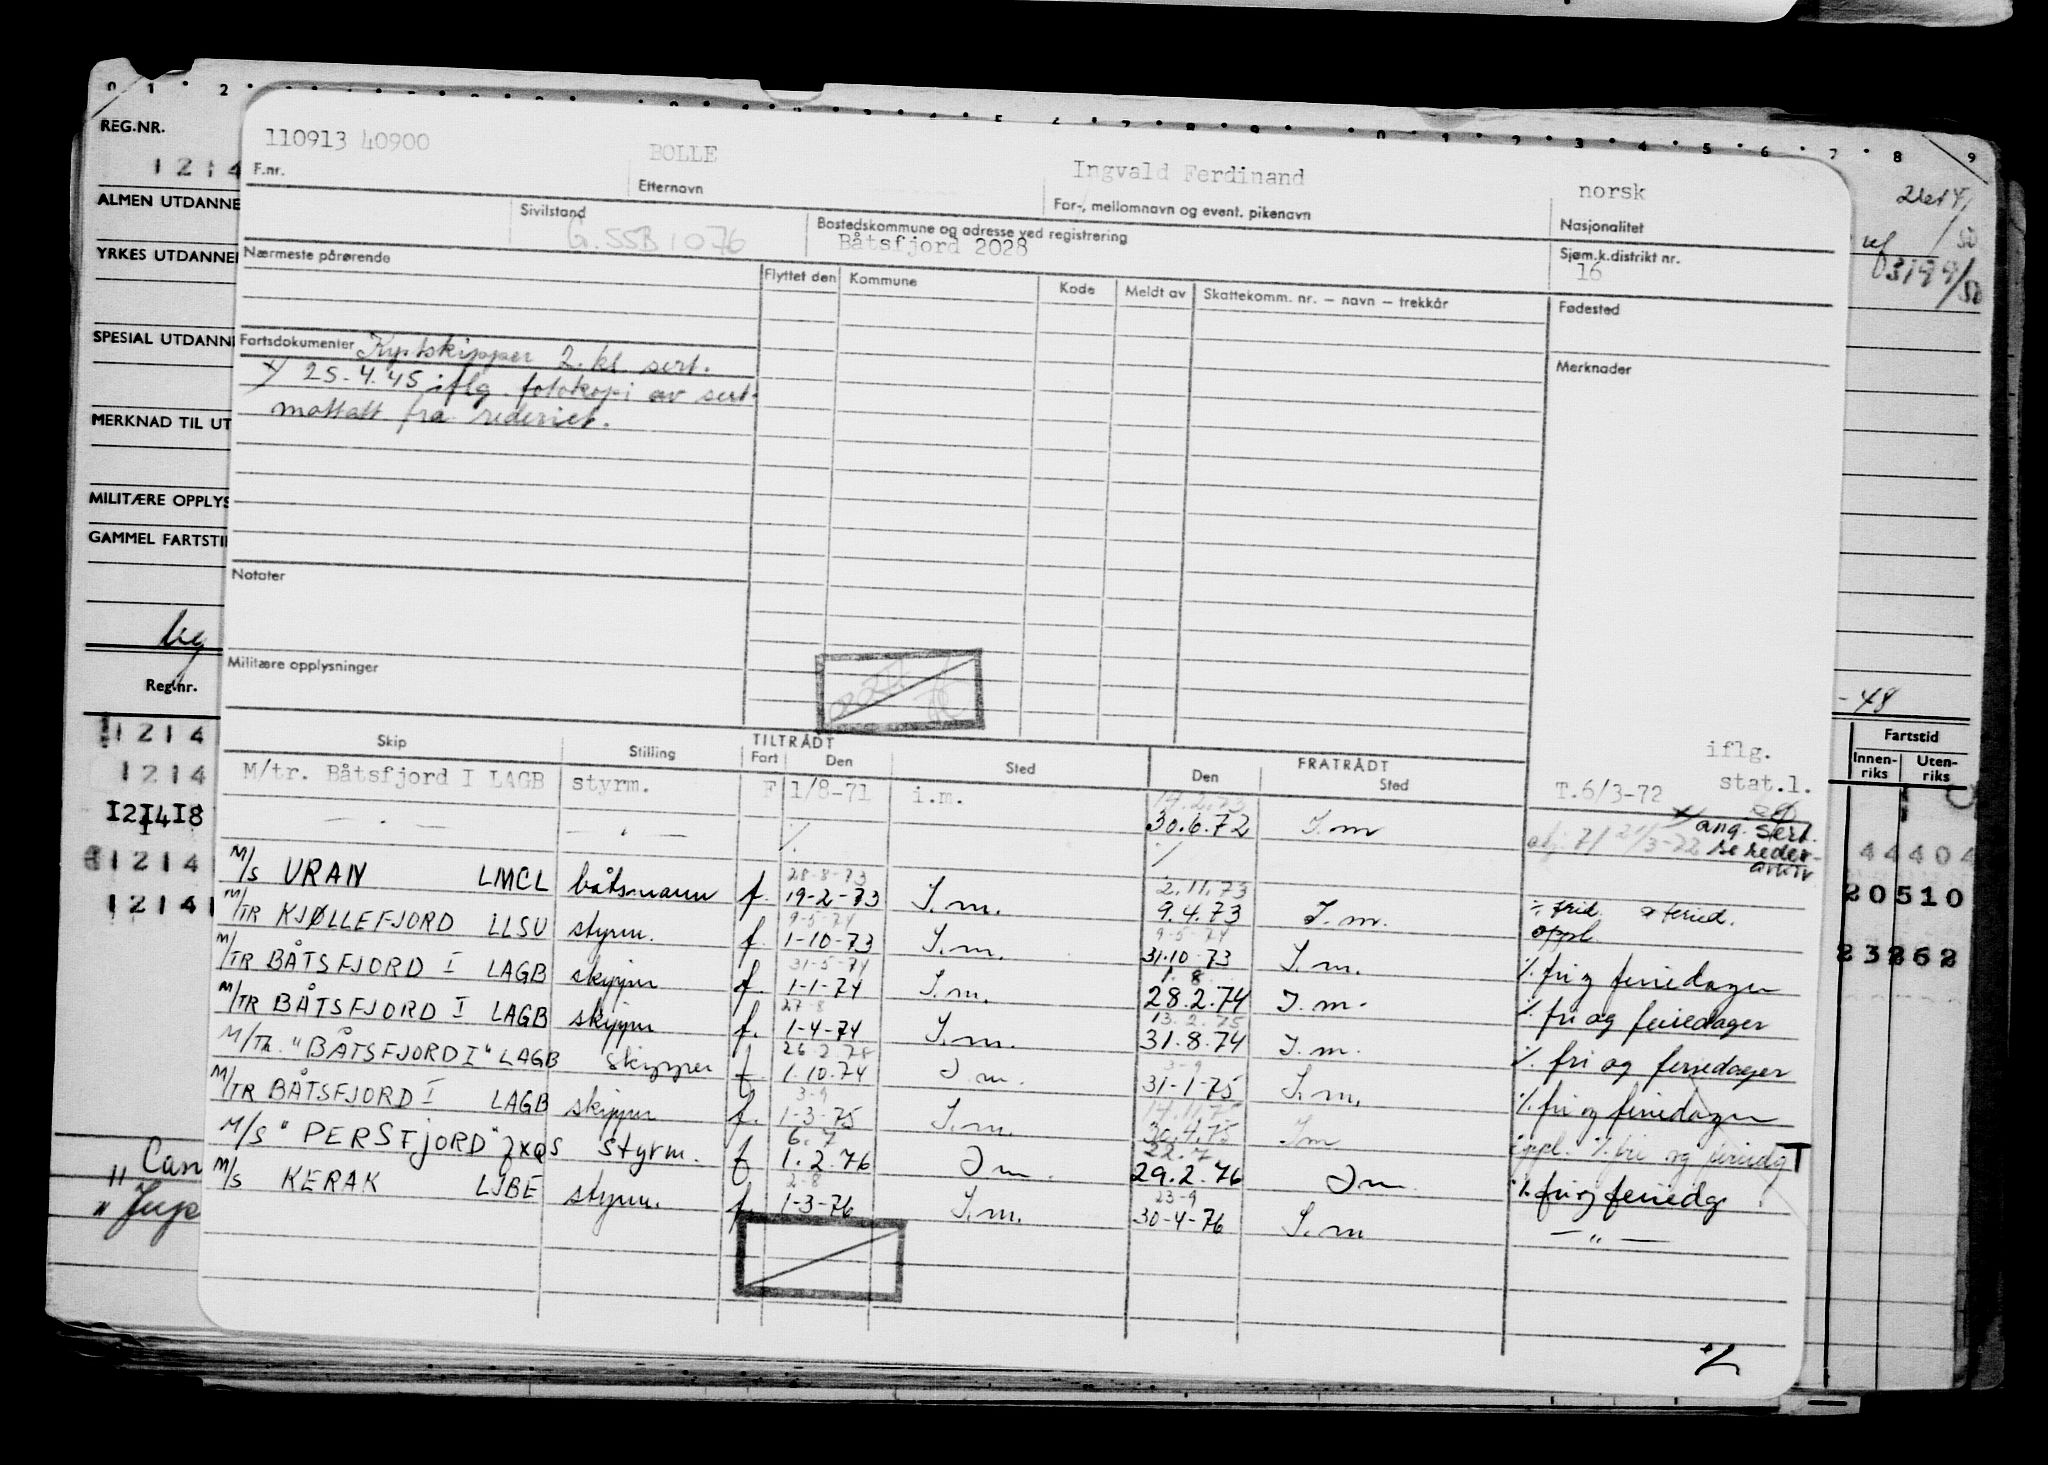 0 1 2
5 6 7 8 9 0 1 2 3 4 5 6 7 8 9
REG.NR.
1214
ALMEN UTDANNE
YRKES UTDANNE
SPESIAL UTDANN
MERKNAD TIL UT
MILITÆRE OPPLYS
GAMMEL FARTSTI
Reg.nr.
1214
1214
121418
1214
1214
110913 40900 BOLLE Ingvald Ferdinand norsk
F.nr. Etternavn For-, mellomnavn og event. pikenavn Nasjonalitet
Sivilstand Bostedskommune og adresse ved registrering Sjøm.k.distrikt nr.
G.SSB 1076 Båtsfjord 2028 16
Nærmeste pårørende Flyttet den Kommune Kode Meldt av Skattekomm. nr. – navn – trekkår Fødested
Fartsdokumenter Kystskipper 2. kl. sert.
x) 25.4.45 iflg. fotokopi av sert.
mottatt fra rederiet.
Merknader
Notater
Militære opplysninger
-48
Fartstid
Innen-riks Uten-riks
44404
20510
23262
TILTRÅDT FRATRÅDT
Skip Stilling Fart Den Sted Den Sted
iflg.
M/tr. Båtsfjord I LAGB styrm. F 1/8-71 i.m. T.6/3-72 stat.l.
— " — — " — 30.6.72 I.m x) ang. sert.
se reder-
arkiv
28-8-73 2.11.73
M/S URAN LMCL båtsmann f. 19-2-73 I.m. 9.4.73 I.m. % frid. og feried.
oppl.
9-5-74 9-5-74
M/TR KJØLLEFJORD LLSU styrm. f. 1-10-73 I.m. 31.10.73 I.m. % fri og feriedager
31-5-74 1.8
M/TR BÅTSFJORD I LAGB skipper f. 1-1-74 I.m. 28.2.74 I.m. % fri og feriedager
27-8 13.2.75
M/TR BÅTSFJORD I LAGB skipper f. 1-4-74 I.m. 31.8.74 I.m. % fri og feriedager
M/Th. "BÅTSFJORD I" LAGB skipper f 1.10.74 I m. 31-1-75 I.m. % fri og feriedager
3-9 14.11.75
M/TR BÅTSFJORD I LAGB skipper f. 1-3-75 I.m. 30.4.75 I m oppl. % fri og feriedg T
6.7 22.7
M/S "PERSFJORD" styrm. f 1.2.76 I m. 29.2.76 I m. % fri og feriedg
2-8 23-9
M/S KERAK LJBE styrm. f. 1-3-76 I.m. 30-4-76 I.m — " —